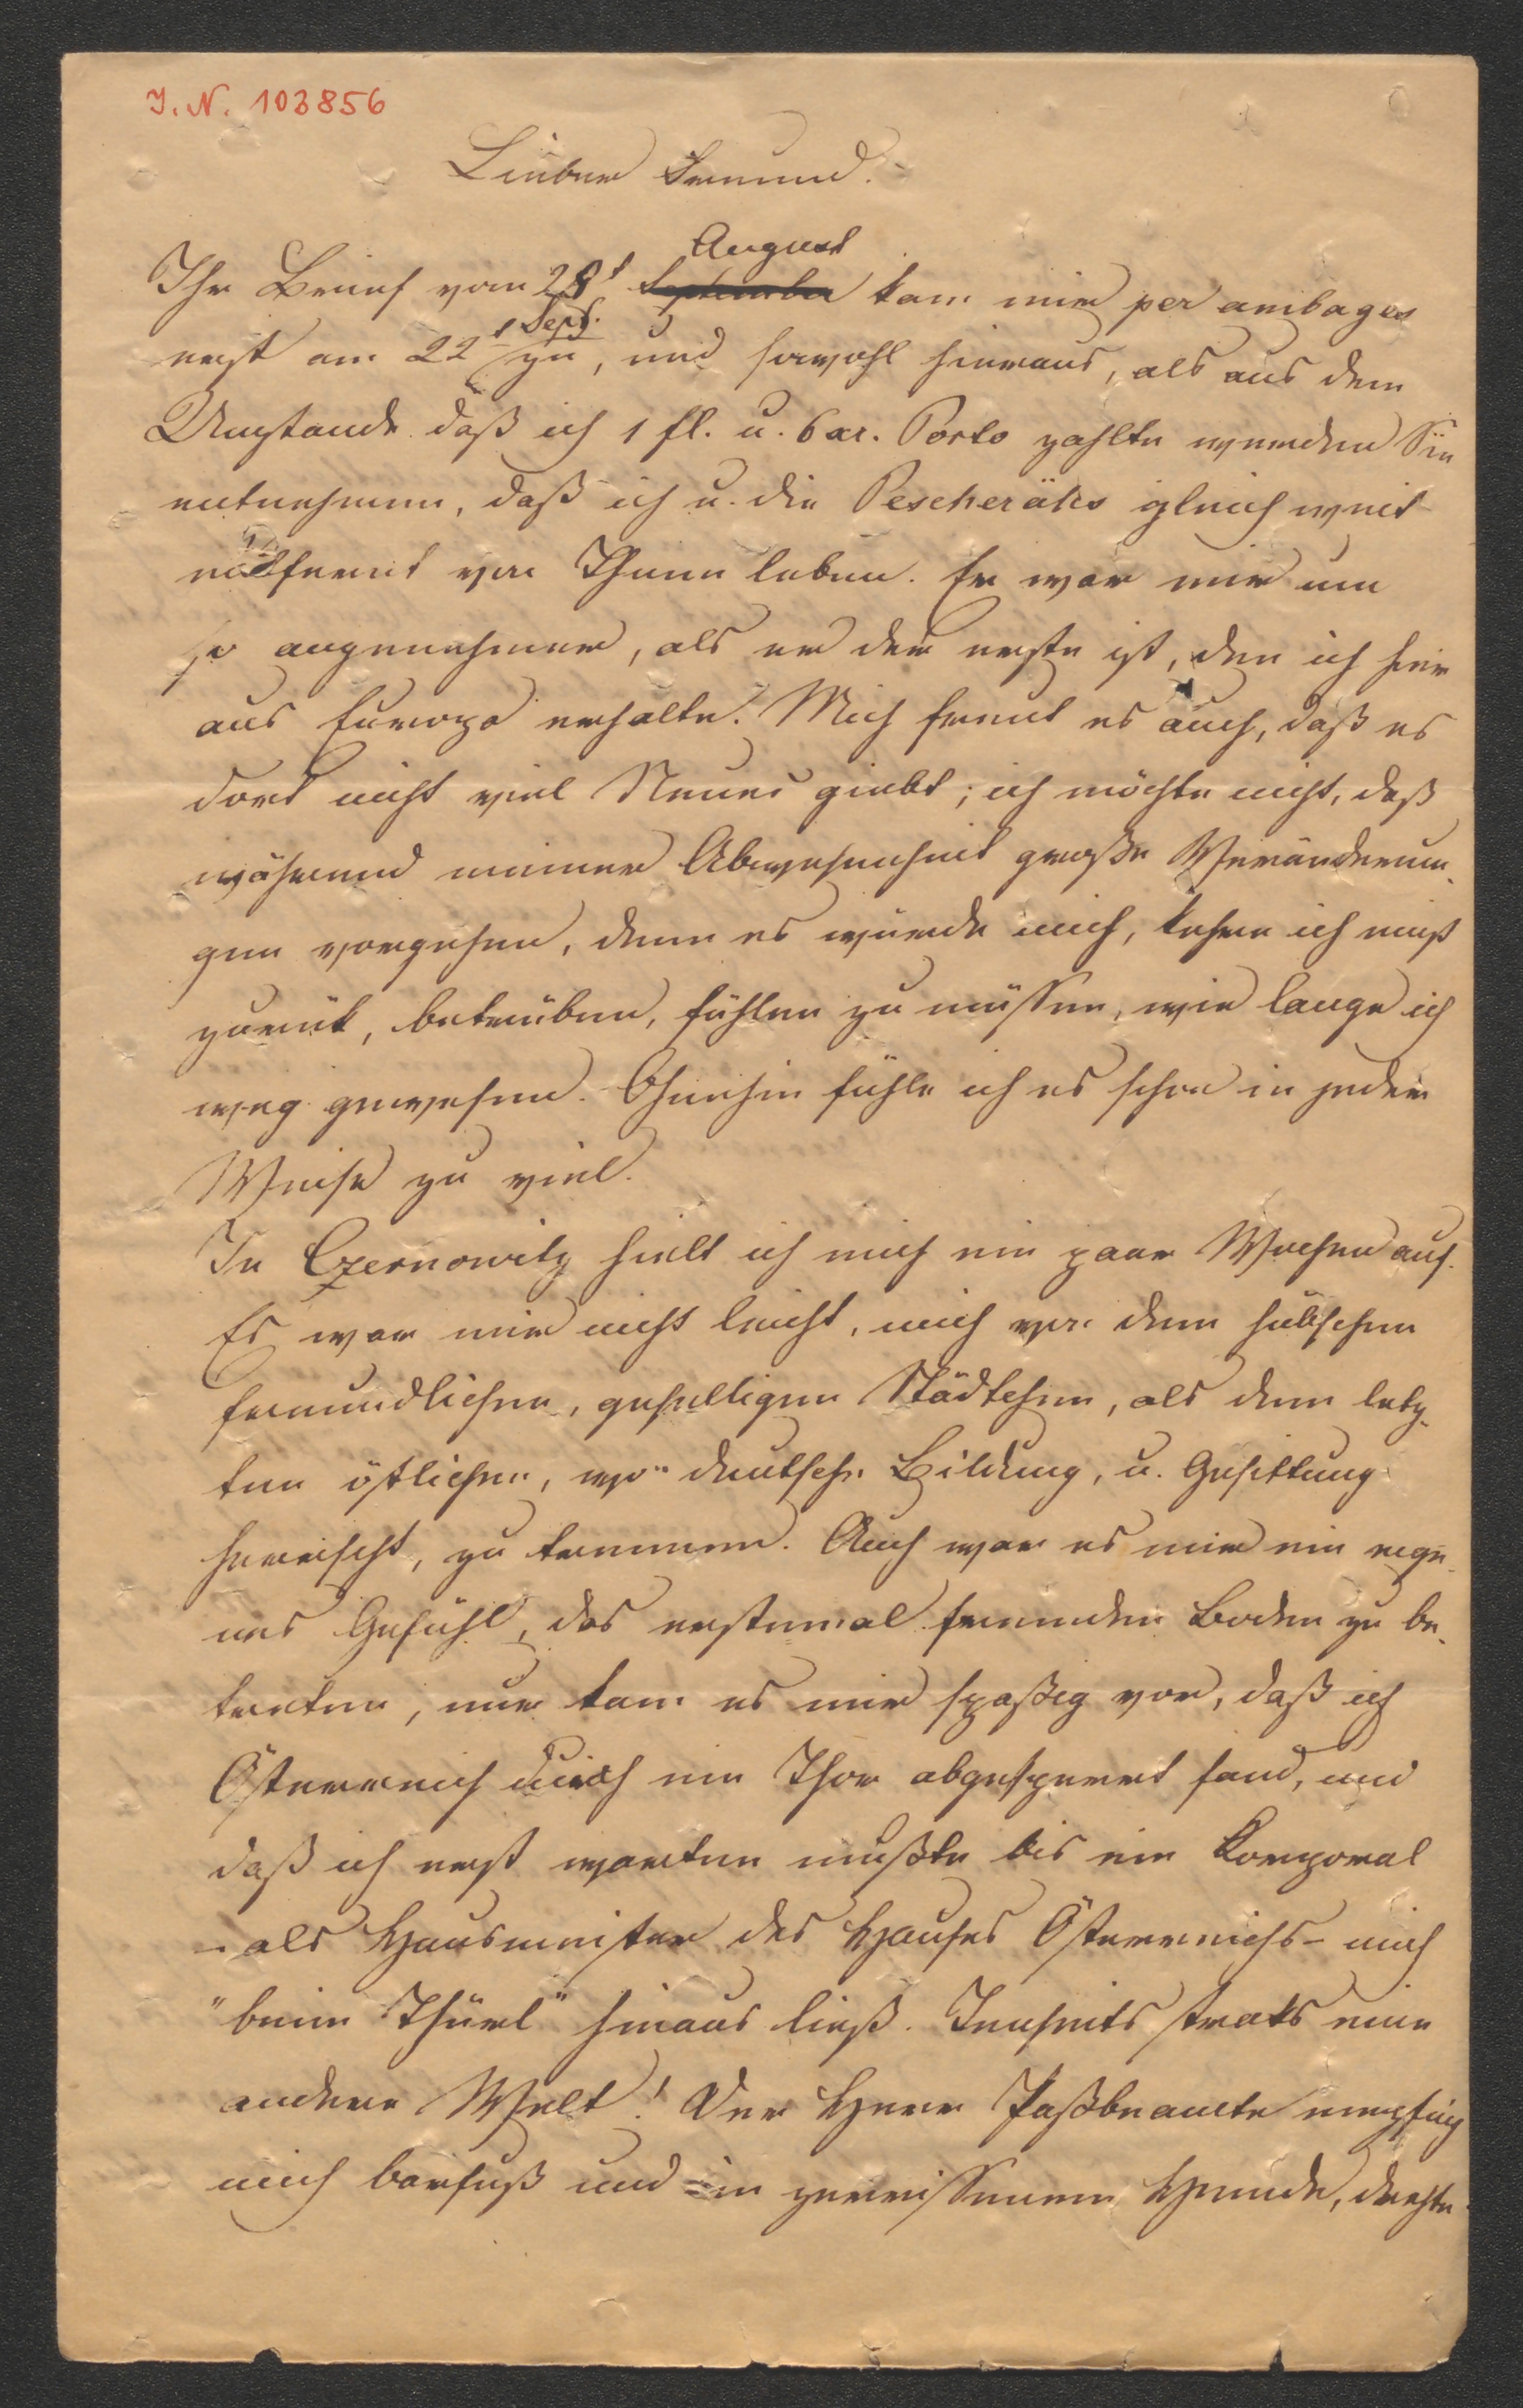 I. N. 103856
Lieber Freund!
August
Ihr Brief vom 28t September kam mir per ambages
Sept.
erst am 22t zu, und sowohl hieraus, als aus dem
Umstande daß ich 1 fl. u. 6 xr. Porto zahlte werden Sie
entnehmen, daß ich u. die Pescherähs gleich weit
entfernt von Ihnen leben. Er war mir um
so angenehmer, als er der erste ist, den ich hier
aus Europa erhalte. Mich freut es auch, daß es
dort nicht viel Neues giebt; ich möchte nicht, daß
während meiner Abwesenheit große Veränderun-
gen vorgehen, denn es würde mich, kehre ich einst
zurük, betrüben, fühlen zu müssen, wie lange ich
weg gewesen. Ohnehin fühle ich es schon in jeder
Weise zu viel.
In Czernowitz hielt ich mich ein paar Wochen auf.
Es war mir nicht leicht, mich von dem hübschen
freundlichen, geselligen Städtchen, als dem letz-
ten östlichen, wo deutsche Bildung, u. Gesittung
herrscht, zu trennen. Auch war es mir ein eige-
nes Gefühl, das erstemal fremden Boden zu be-
treten, nur kam es mir spaßig vor, daß ich
Österreich durch ein Thor abgesperrt fand, und
daß ich erst warten mußte bis ein Korporal
- als Hausmeister des Hauses Österreichs - mich
"beim Thürl" hinaus ließ. Jenseits straks eine
andere Welt! Der Herr Paßbeamte empfing
mich barfuß und in zerrissenem Hemde, drehte